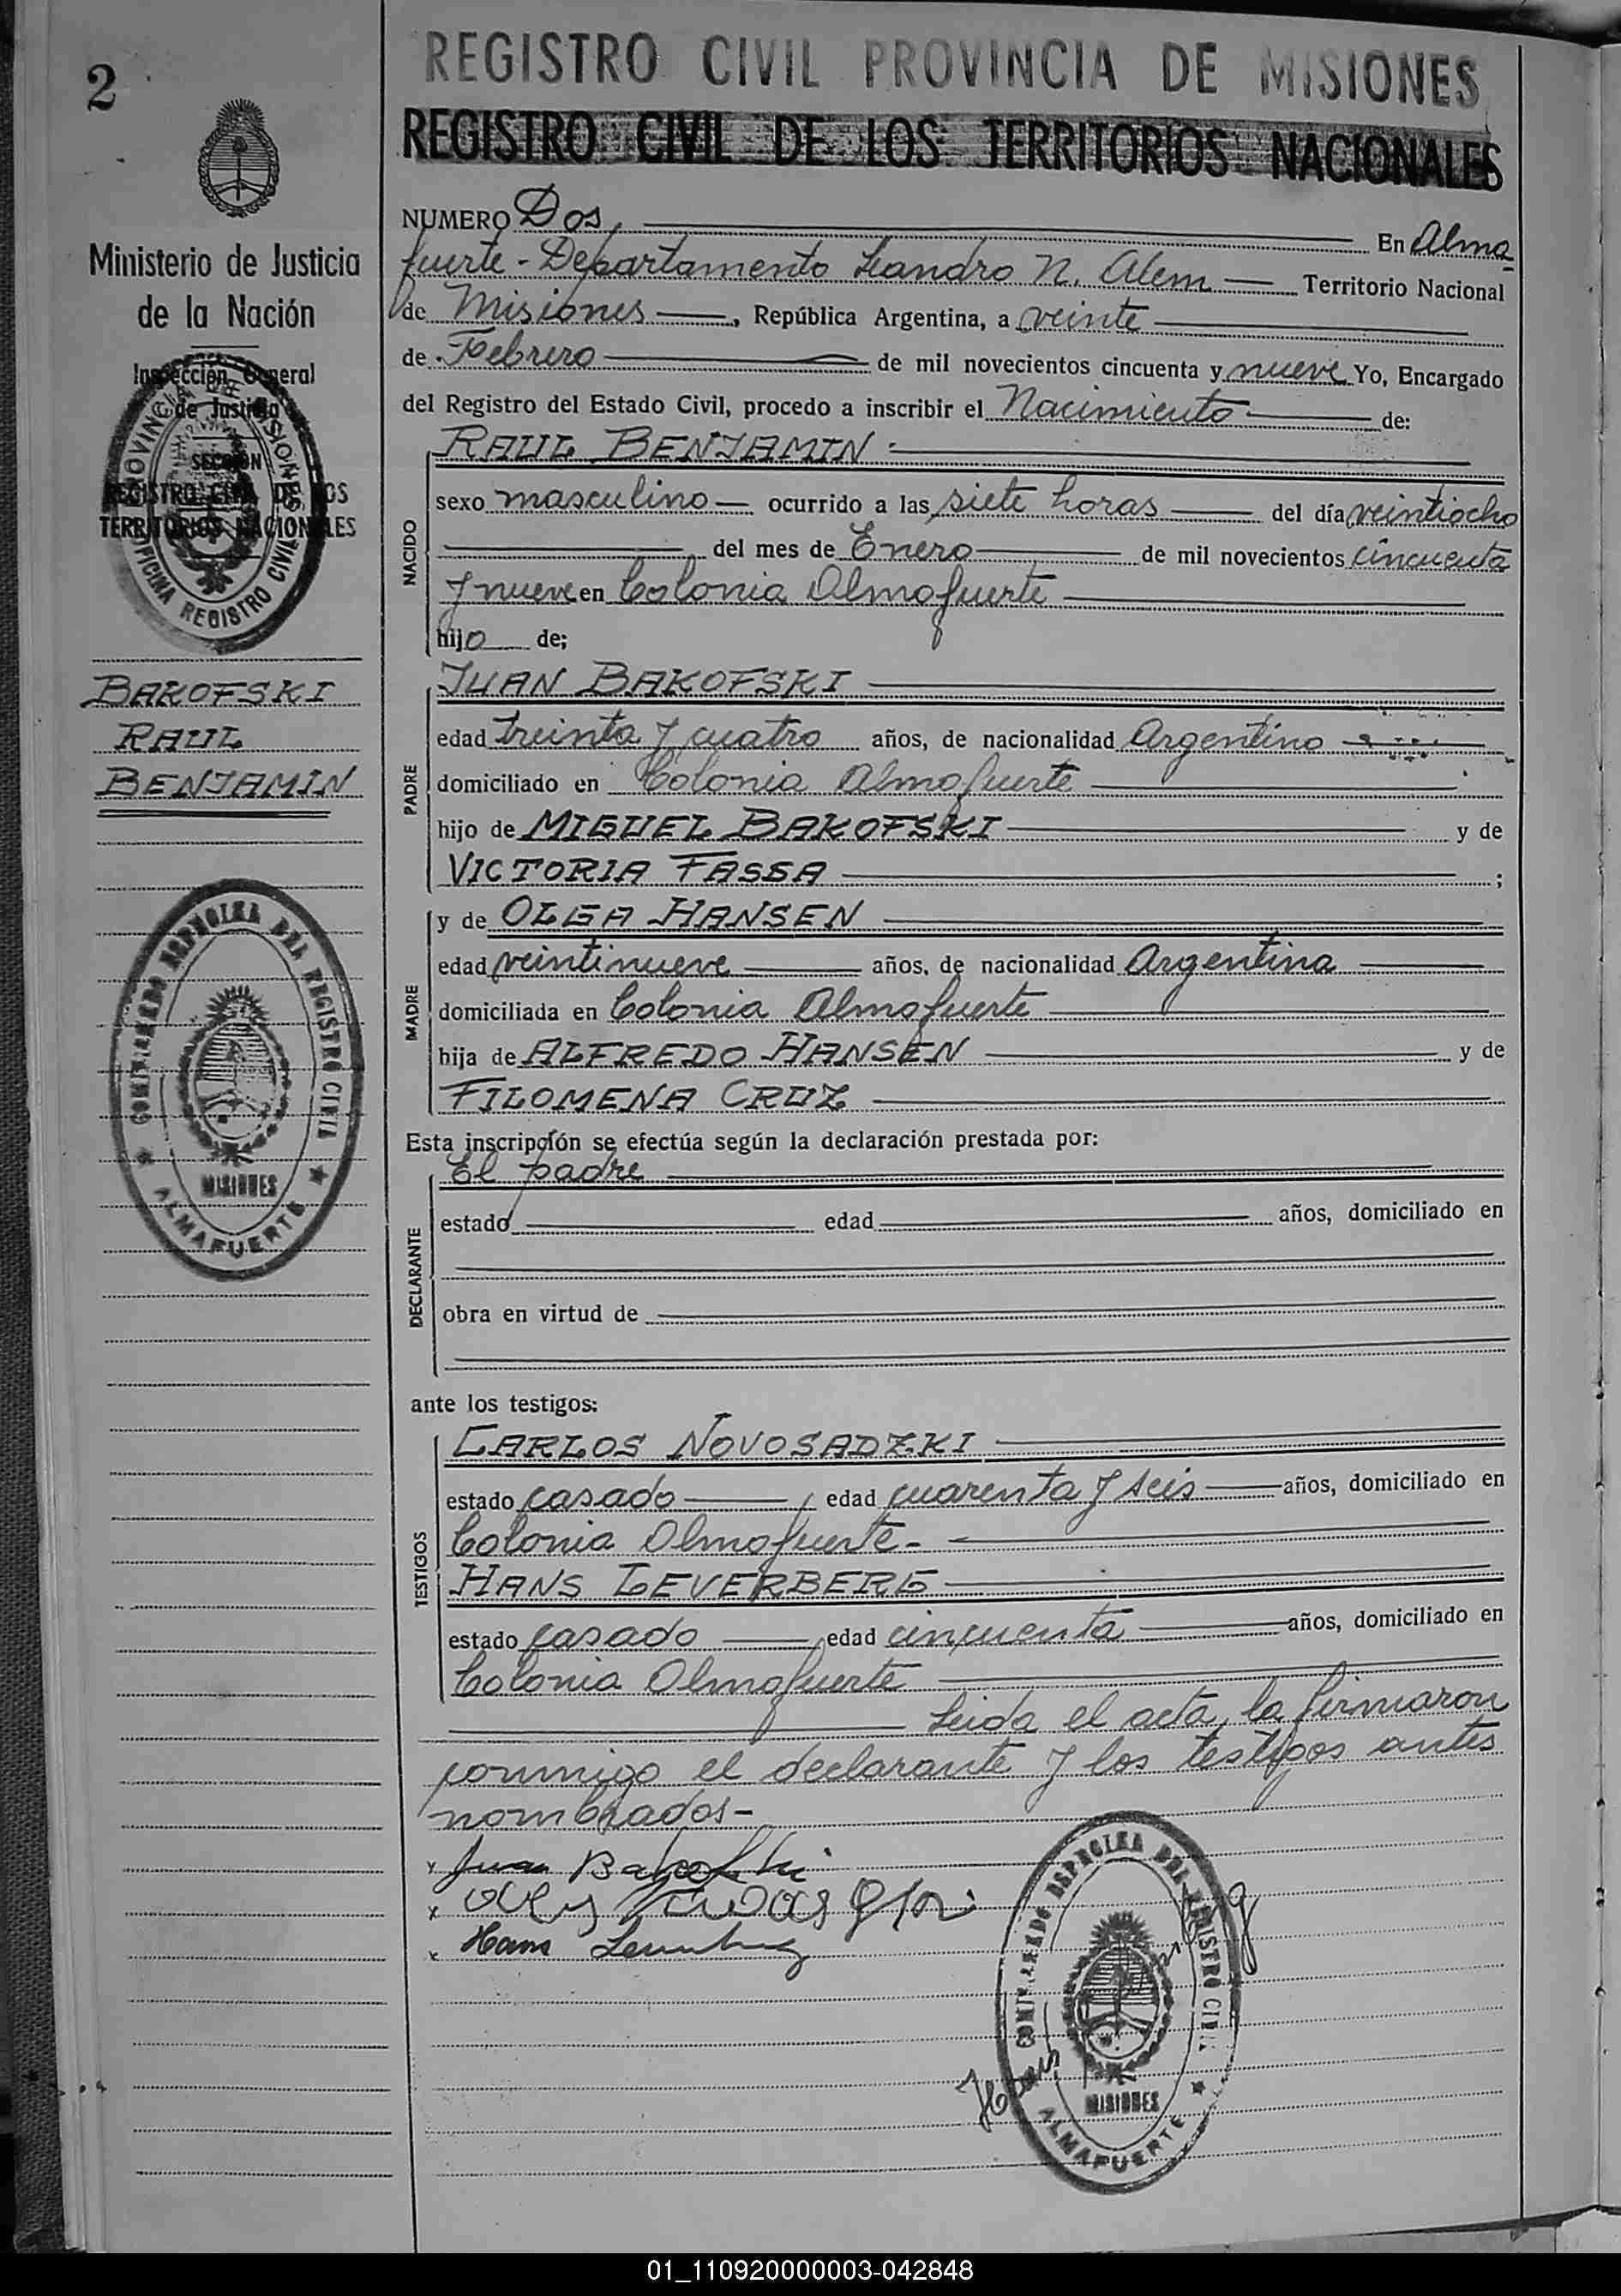 2
REGISTRO CIVIL PROVINCIA DE MISIONES
REGISTRO CIVIL DE LOS TERRITORIOS NACIONALES
Ministerio de Justicia
de la Nación
Inspección General
de Justicia
SECCIÓN
REGISTRO CIVIL DE LOS
TERRITORIOS NACIONALES
PROVINCIA DE MISIONES
OFICINA REGISTRO CIVIL
BAKOFSKI
RAUL
BENJAMIN
REGISTRO CIVIL
MISIONES
ALMAFUERTE
NUMERO Dos, En Alma
fuerte - Departamento Leandro N. Alem Territorio Nacional
de Misiones, República Argentina, a veinte
de Febrero de mil novecientos cincuenta y nueve Yo, Encargado
del Registro del Estado Civil, procedo a inscribir el Nacimiento de:
NACIDO
RAUL BENJAMIN
sexo masculino ocurrido a las siete horas del día veintiocho
del mes de Enero de mil novecientos cincuenta
y nueve en Colonia Almafuerte
hijo de;
PADRE
JUAN BAKOFSKI
edad treinta y cuatro años, de nacionalidad Argentino
domiciliado en Colonia Almafuerte
hijo de MIGUEL BAKOFSKI y de
VICTORIA FASSA ;
MADRE
y de OLGA HANSEN
edad veintinueve años, de nacionalidad Argentina
domiciliada en Colonia Almafuerte
hija de ALFREDO HANSEN y de
FILOMENA CRUZ
Esta inscripción se efectúa según la declaración prestada por:
DECLARANTE
El padre
estado edad años, domiciliado en
obra en virtud de
ante los testigos:
TESTIGOS
CARLOS NOVOSADZKI
estado casado, edad cuarenta y seis años, domiciliado en
Colonia Almafuerte.-
HANS LEVERBERG
estado casado edad cincuenta años, domiciliado en
Colonia Almafuerte
Leida el acta, la firmaron
conmigo el declarante y los testigos antes
nombrados-
x Juan Bakofski
x
x Hans
Hans
REGISTRO CIVIL
MISIONES
ALMAFUERTE
01_110920000003-042848